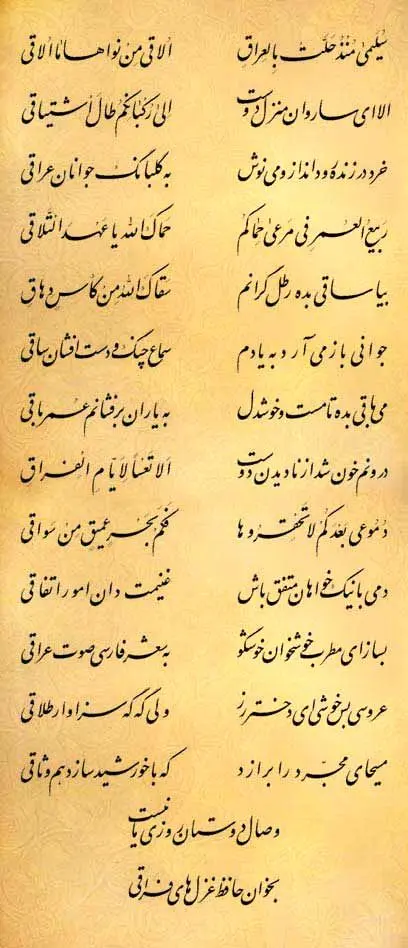 سُلیمیٰ مُنذُ حَلَّت بِالعِراقِ اُلاقی مِن نَواها ما اُلاقی
الا ای ساروان منزل دوست اِلیٰ رُکبانِکُم طالَ اشتیاقی
خرد در زنده رود انداز و می نوش به گلبانگ جوانان عراقی
رَبیعُ العُمرِ فی مَرعیٰ حِماکُم حَماکَ اللّهُ یا عَهدَ التَّلاقی
بیا ساقی بده رطل گرانم سَقاکَ اللّهُ مِن کَأسٍ دِهاقِ
جوانی باز می آرد به یادم سماع چنگ و دست افشان ساقی
می باقی بده تا مست و خوشدل به یاران برفشانم عمر باقی
درونم خون شد از نادیدن دوست اَلا تَعساً لِاَیّامِ الفِراق
دُموعی بَعدَکُم لا تَحقِروها فَکَم بَحرٍ عَمیقٍ مِن سَواقی
دمی با نیک خواهان متفق باش غنیمت دان امور اتفاقی
بساز ای مطرب خوشخوان خوشگو به شعر فارسی صوت عراقی
عروسی بس خوشی ای دختر رز ولی گه گه سزاوار طلاقی
مسیحای مجرد را برازد که با خورشید سازد هم وثاقی
وصال دوستان روزی ما نیست
بخوان حافظ غزل های فراقی